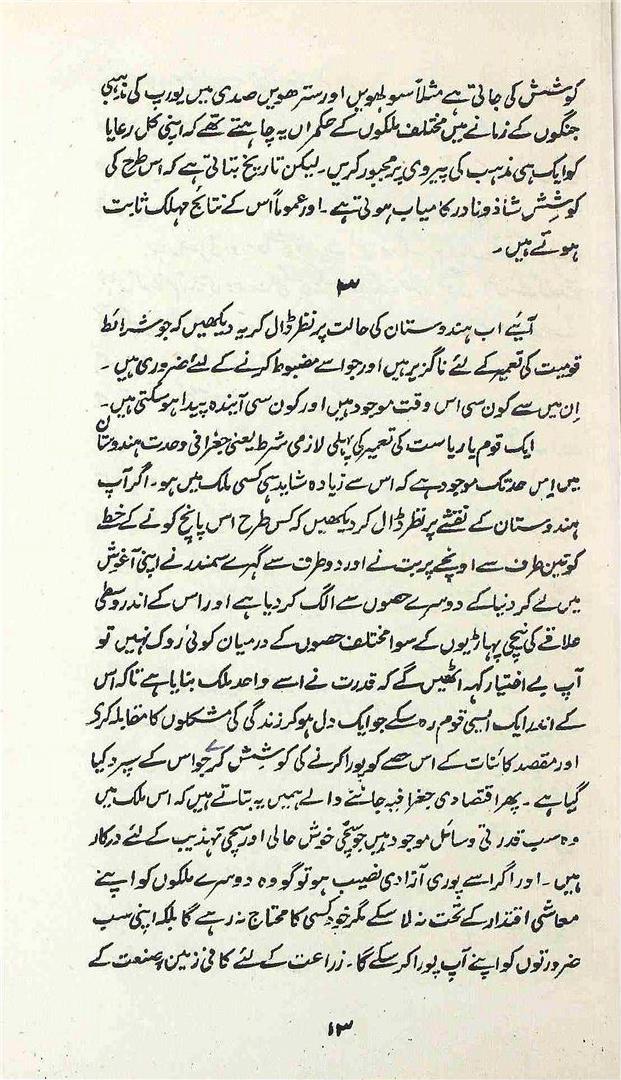 کوشش کی جاتی ہے مثلاً سولہویں اور سترھویں صدی میں یورپ کی مذہبی
جنگوں کے زمانے میں مختلف ملکوں کے حکمراں یہ چاہتے تھے کہ اپنی کل رعایا
کو ایک ہی مذہب کی پیروی پر مجبور کریں۔ لیکن تاریخ بتاتی ہے کہ اس طرح کی
کوشش شاذونادر کامیاب ہوتی ہے۔ اور عموماً اس کے نتائج مہلک ثابت
ہوتے ہیں۔
۳
آیئے اب ہندوستان کی حالت پر نظر ڈال کر یہ دیکھیں کہ جو شرائط
قومیت کی تعمیر کے لئے ناگزیر ہیں اور جو اسے مضبوط کرنے کے لئے ضروری ہیں۔
اِن میں سے کون سی اس وقت موجود ہیں اور کون سی آیندہ پیدا ہو سکتی ہیں۔
ایک قوم یا ریاست کی تعمیر کی پہلی لازمی شرط یعنی جغرافی وحدت ہندوستان
میں اِس حد تک موجود ہے کہ اس سے زیادہ شاید ہی کسی ملک میں ہو۔ اگر آپ
ہندوستان کے نقشے پر نظر ڈال کر دیکھیں کہ کس طرح اس پانچ کونے کے خطے
کو تین طرف سے اونچے پربت نے اور دو طرف سے گہرے سمندر نے اپنی آغوش
میں لے کر دنیا کے دوسرے حصوں سے الگ کر دیا ہے اور اس کے اندر وسطی
علاقے کی نیچی پہاڑیوں کے سوا مختلف حصوں کے درمیان کوئی روک نہیں تو
آپ بے اختیار کہہ اٹھیں گے کہ قدرت نے اسے واحد ملک بنایا ہے تاکہ اس
کے اندر ایک ایسی قوم رہ سکے جو ایک دل ہو کر زندگی کی مشکلوں کا مقابلہ کرے
اور مقصد کائنات کے اس حصے کو پورا کرنے کی کوشش کرے جو اس کے سپرد کیا
گیا ہے۔ پھر اقتصادی جغرافیہ جاننے والے ہمیں یہ بتاتے ہیں کہ اس ملک میں
وہ سب قدرتی وسائل موجود ہیں جو سچی خوش حالی اور سچی تہذیب کے لئے درکار
ہیں۔ اور اگر اسے پوری آزادی نصیب ہو تو گو وہ دوسرے ملکوں کو اپنے
معاشی اقتدار کے تحت نہ لا سکے مگر خود کسی کا محتاج نہ رہے گا بلکہ اپنی سب
ضرورتوں کو اپنے آپ پورا کر سکے گا۔ زراعت کے لئے کافی زمین، صنعت کے
۱۳